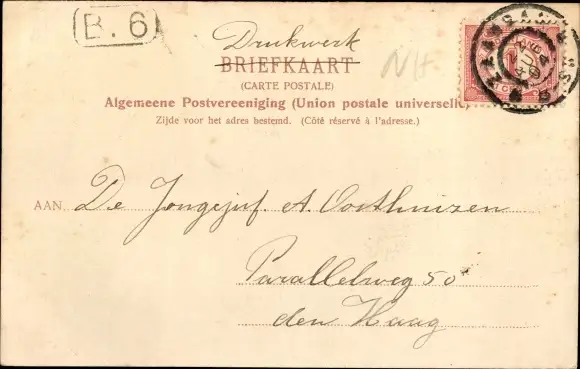 B. 6
Drukwerk
BRIEFKAART
(CARTE POSTALE)
NH
Algemeene Postvereeniging (Union postale universelle)
Zijde voor het adres bestemd. (Côté réservé à l'adresse.)
AAN De Jongejuf. A. Oosthuizen
Parallelweg 50
den Haag